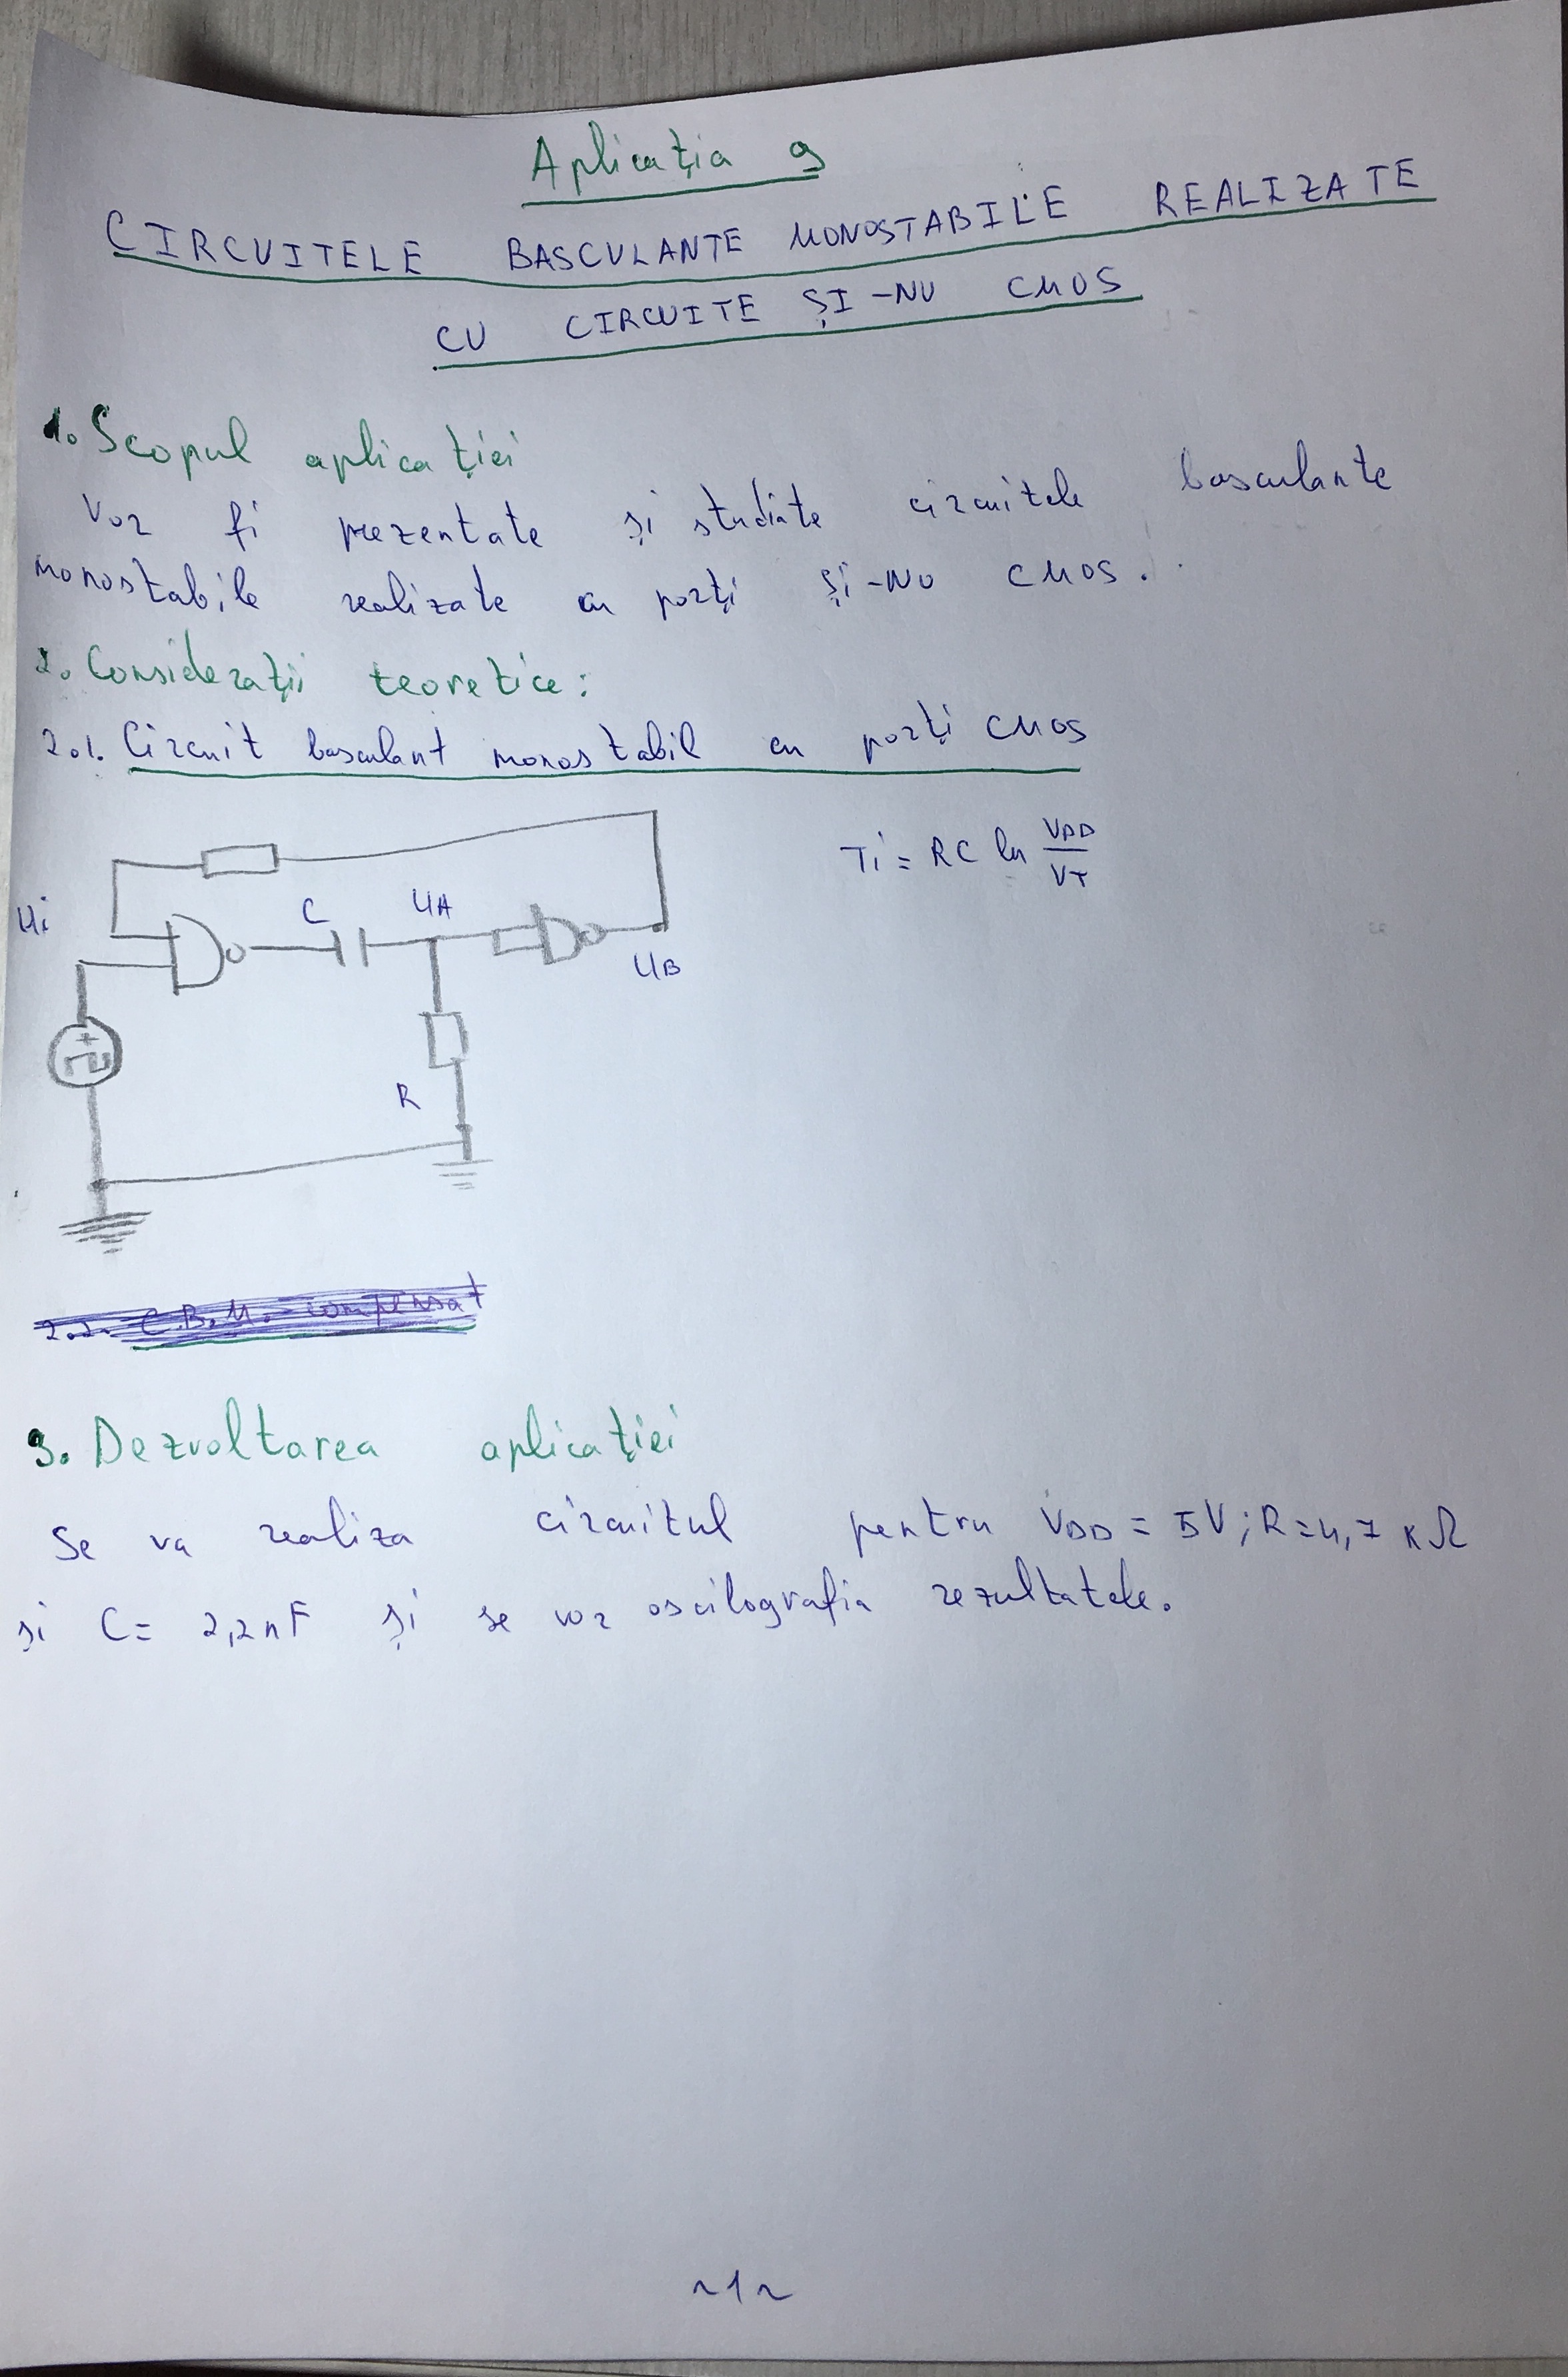 Aplicația 9
CIRCUITELE BASCULANTE MONOSTABILE REALIZATE
CU CIRCUITE ȘI-NU CMOS
1. Scopul aplicației
Vor fi prezentate și studiate circuitele basculante
monostabile realizate cu porți Și-NU CMOS.
2. Considerații teoretice:
2.1. Circuit basculant monostabil cu porți CMOS
Ti = RC ln VDD/VT
Ui
C
UA
UB
+
R
2.2. C.B.M. compensat
3. Dezvoltarea aplicației
Se va realiza circuitul pentru VDD = 5V; R=4,7 KΩ
și C= 2,2nF și se vor oscilografia rezultatele.
~1~